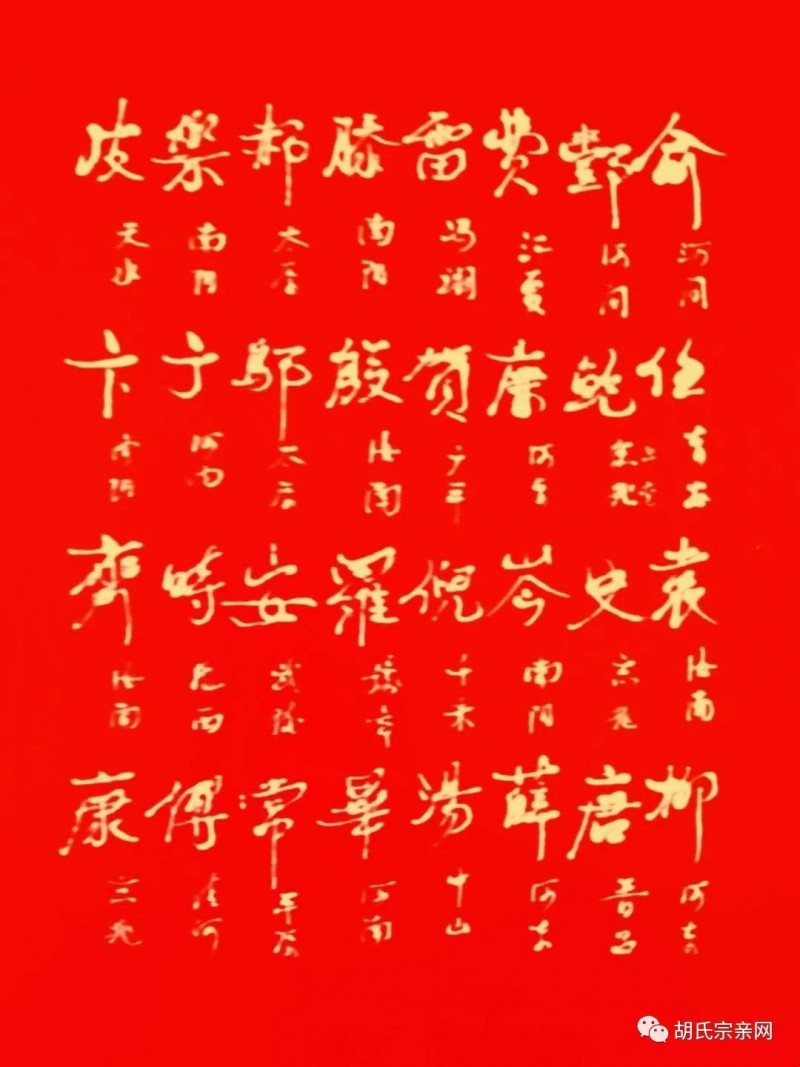 俞 河间 任 袁 汝南 柳 河东
酆 河间 鮑 史 京兆 唐 晋昌
費 江夏 廉 河东 岑 南阳 薛 河东
雷 冯翊 賀 广平 倪 千乘 湯 中山
滕 南阳 殷 汝南 羅 豫章 畢 河南
郝 太原 邬 太原 安 武陵 常 平原
樂 南阳 于 河南 時 傅 清河
皮 天水 卞 济阳 齊 汝南 康 京兆
胡氏宗亲网